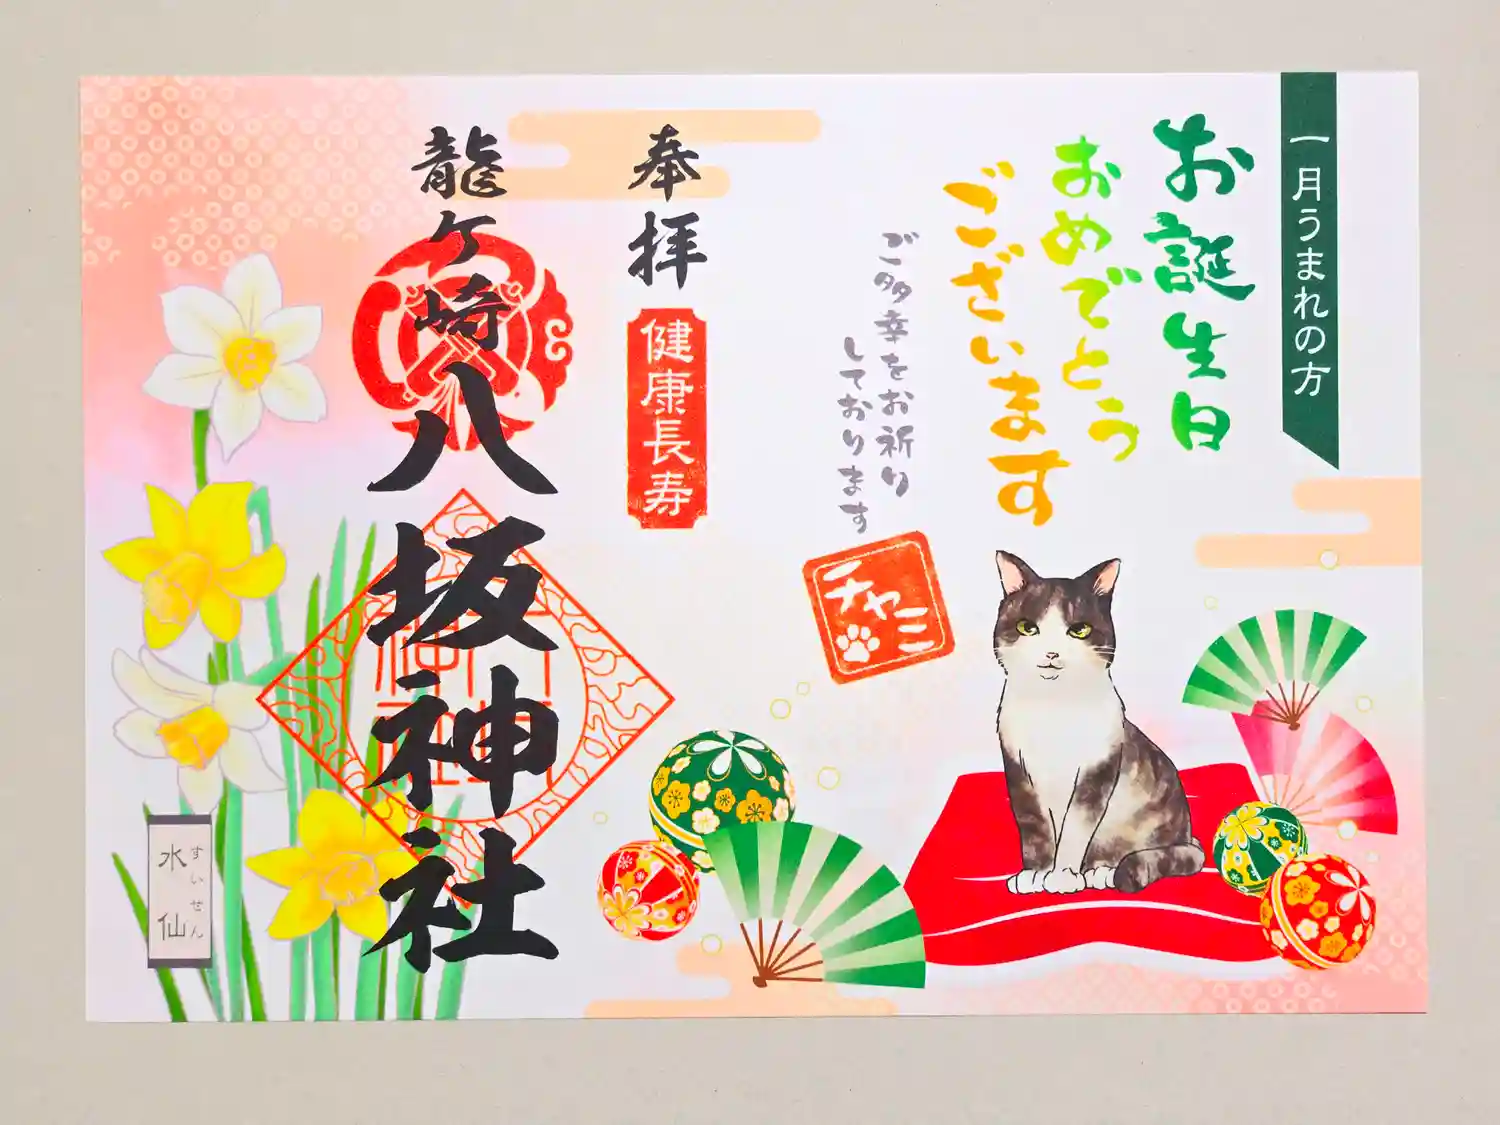 一月うまれの方
お誕生日
おめでとう
ございます
ご多幸をお祈り
しております
チャミ
奉拝
健康長寿
龍ケ崎八坂神社
水仙
すいせん